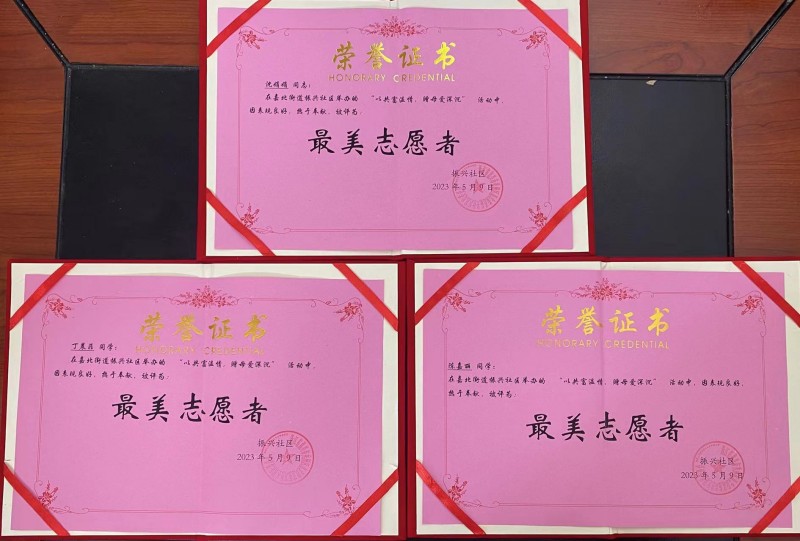 荣誉证书
HONORARY CREDENTIAL
沈娟娟 同志：
在嘉北街道振兴社区举办的 “以共富温情，赠母爱深沉” 活动中，
因表现良好、热于奉献，被评为：
最美志愿者
振兴社区
2023年5月9日
荣誉证书
HONORARY CREDENTIAL
同学：
在嘉北街道振兴社区举办的 “以共富温情，赠母爱深沉” 活动中，
因表现良好、热于奉献，被评为：
最美志愿者
振兴社区
2023年5月9日
荣誉证书
HONORARY CREDENTIAL
陈嘉丽 同学：
在嘉北街道振兴社区举办的 “以共富温情，赠母爱深沉” 活动中，因表现良好、
热于奉献，被评为：
最美志愿者
振兴社区
2023年5月9日